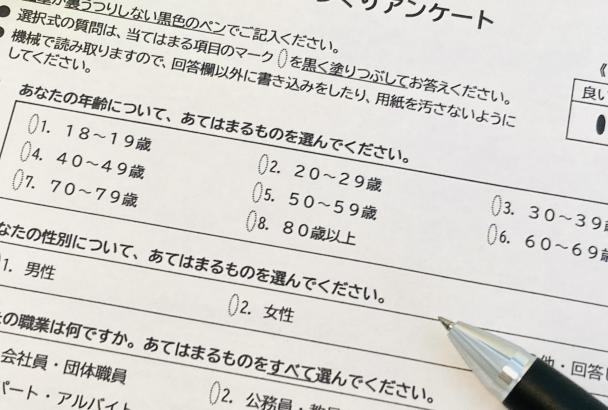 くりアンケート
裏うつりしない黒色のペンでご記入ください。
選択式の質問は、当てはまる項目のマーク を黒く塗りつぶしてお答えください。
機械で読み取りますので、回答欄以外に書き込みをしたり、用紙を汚さないように
してください。
良い
あなたの年齢について、あてはまるものを選んでください。
1. 18～19歳 2. 20～29歳 3. 30～39歳
4. 40～49歳 5. 50～59歳 6. 60～69歳
7. 70～79歳 8. 80歳以上
なたの性別について、あてはまるものを選んでください。
1. 男性 2. 女性 他・回答し
の職業は何ですか。あてはまるものをすべて選んでください。
会社員・団体職員 2. 公務員・教
パート・アルバイト